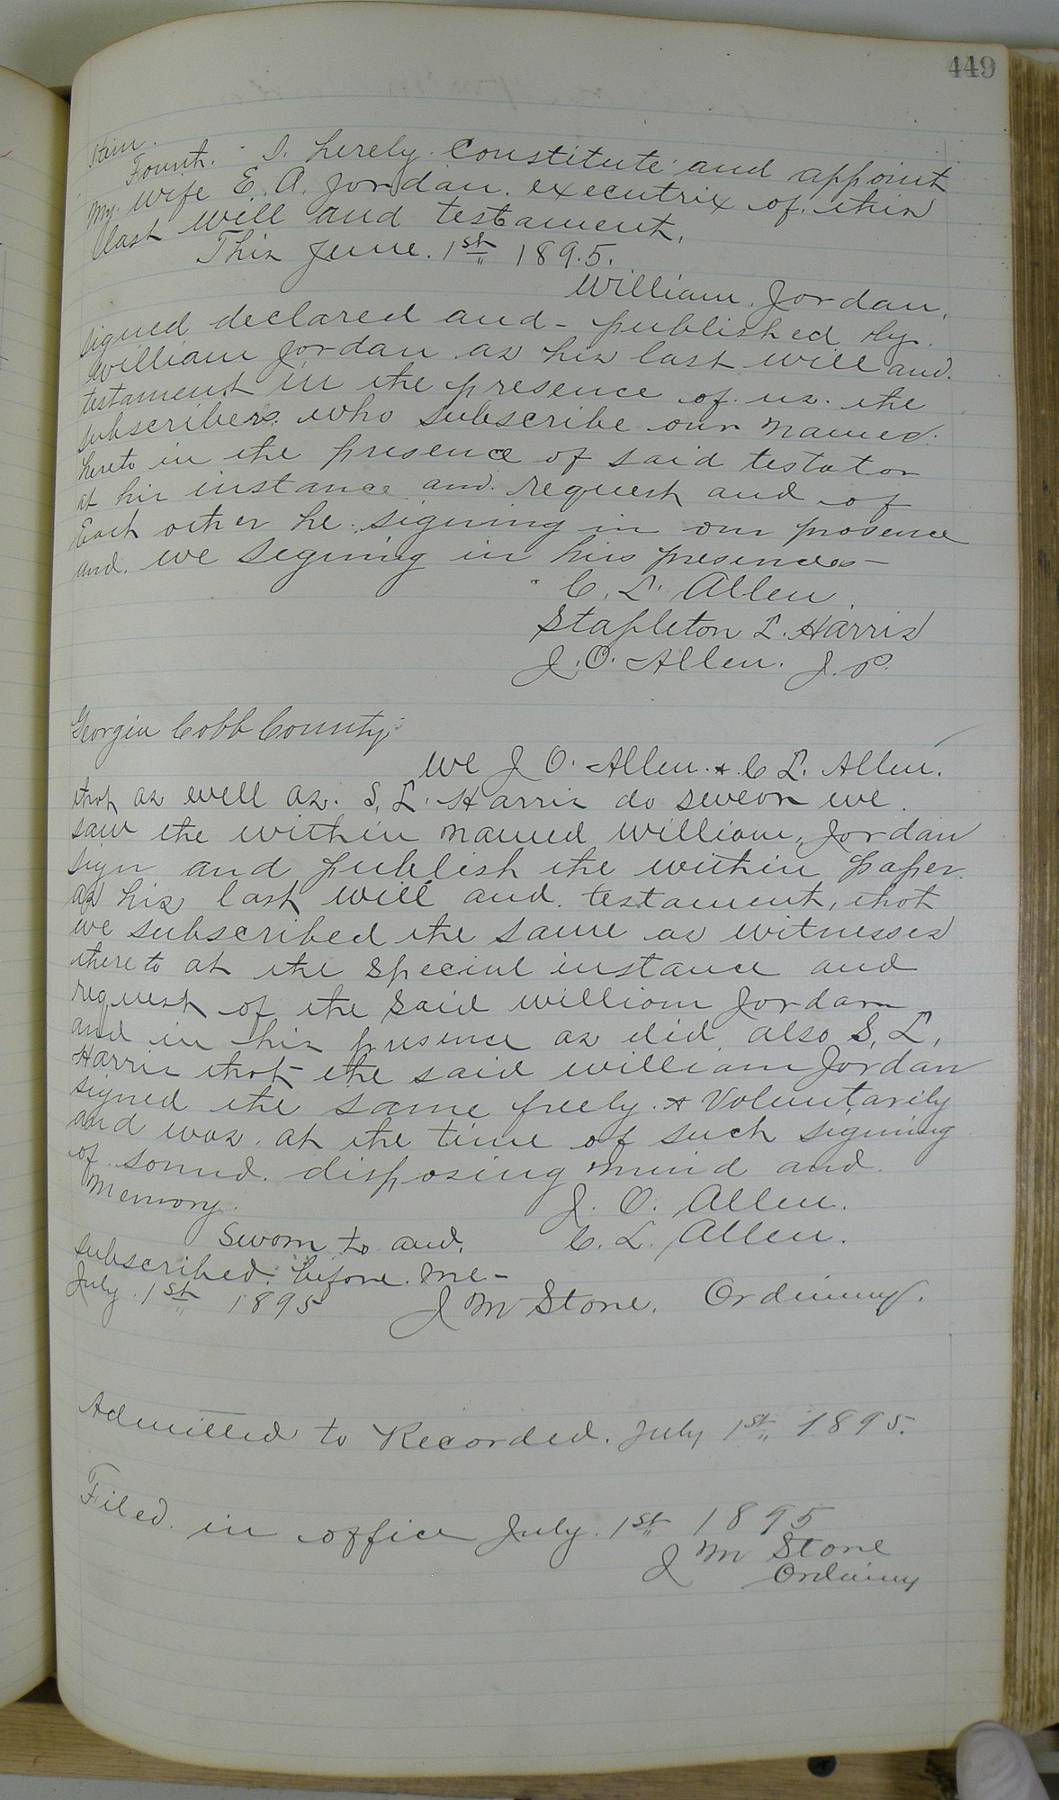 449
Item.
Fourth. I. hereby constitute and appoint
my wife E. A. Jordan. executrix of this
last will and testament.
This June. 1st 1895.
William. Jordan.
signed declared and - published by.
William Jordan as his last will and.
testament in the presence of us. the
subscribers. who subscribe our names.
hereto in the presence of said testator
at his instance and request and of
Each other he. signing in our presence
and. we signing in his presence -
C. L. Allen
Stapleton L. Harris
J. O. Allen. J. P.
Georgia Cobb County,
We J O. Allen. & C L. Allen.
that as well as. S, L. Harris do swear we.
saw the within named William, Jordan
sign and publish the within paper.
as his last will and. testament, that
we subscribed the same as witnesses
thereto at the special instance and
request of the said William Jordan
and in his presence as did. also S, L,
Harris that the said William Jordan
signed the same freely. & Voluntarily
and was. at the time of such signing
of sound. disposing mind and.
memory.
J. O. Allen.
Sworn to and.
C. L. Allen.
subscribed. before. me -
July. 1st 1895
J M Stone. Ordinary.
Admitted to Recorded. July 1st 1895.
Filed. in office July. 1st 1895
J M Stone
Ordinary